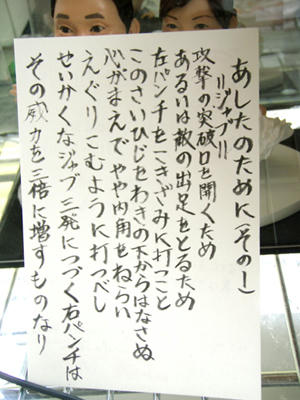 あしたのために(その一)
=ジャブ=
攻撃の突破口を開くため
あるいは敵の出足をとるため
左パンチをこきざみに打つこと
このさいひじをわきの下からはなさぬ
心がまえでやや内角をねらい
えぐりこむように打つべし
せいかくなジャブ三発につづく右パンチは
その威力を三倍に増すものなり